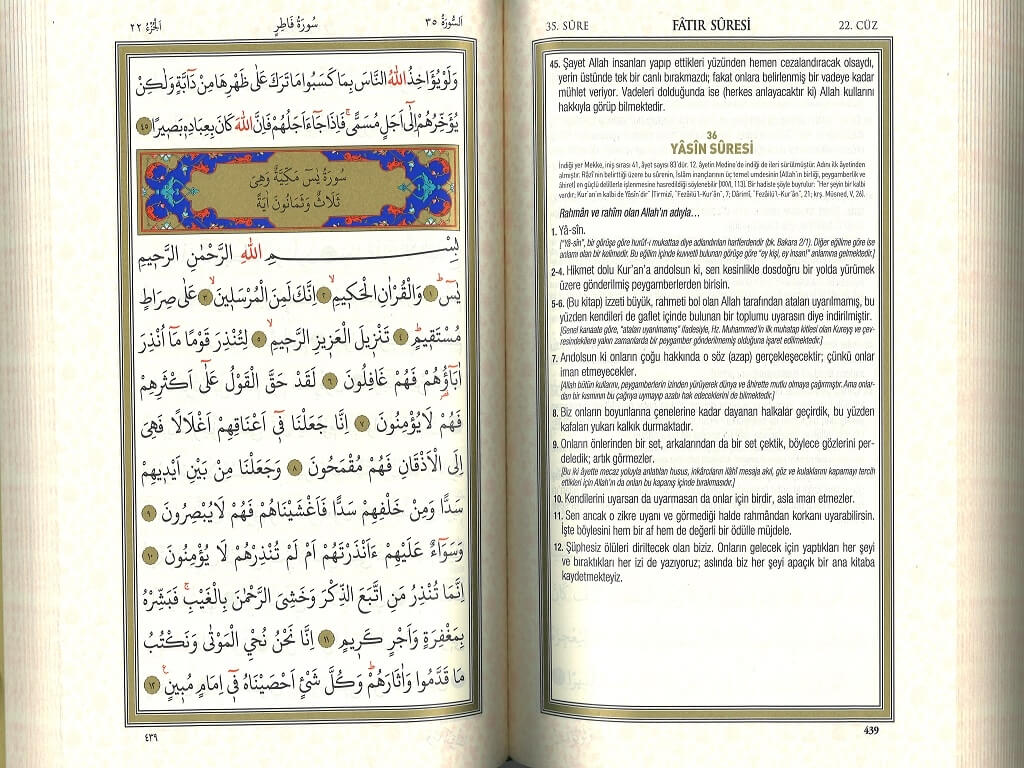 الجزء ٢٢
سورة فاطر
السورة ٣٥
وَلَوْ يُؤَاخِذُ اللّٰهُ النَّاسَ بِمَا كَسَبُوا مَا تَرَكَ عَلٰى ظَهْرِهَا مِنْ دَٓابَّةٍ وَلٰكِنْ
يُؤَخِّرُهُمْ اِلٰٓى اَجَلٍ مُسَمًّىۚ فَاِذَا جَٓاءَ اَجَلُهُمْ فَاِنَّ اللّٰهَ كَانَ بِعِبَادِه۪ بَص۪يرًا ٤٥
سُورَةُ يٰسٓ مَكِّيَّةٌ وَهِيَ
ثَلَاثٌ وَثَمَانُونَ اٰيَةً
بِسْمِ اللّٰهِ الرَّحْمٰنِ الرَّح۪يمِ
يٰسٓۜ ١ وَالْقُرْاٰنِ الْحَك۪يمِۙ ٢ اِنَّكَ لَمِنَ الْمُرْسَل۪ينَۙ ٣ عَلٰى صِرَاطٍ
مُسْتَق۪يمٍۜ ٤ تَنْز۪يلَ الْعَز۪يزِ الرَّح۪يمِۙ ٥ لِتُنْذِرَ قَوْمًا مَٓا اُنْذِرَ
اٰبَٓاؤُ۬هُمْ فَهُمْ غَافِلُونَ ٦ لَقَدْ حَقَّ الْقَوْلُ عَلٰٓى اَكْثَرِهِمْ
فَهُمْ لَا يُؤْمِنُونَ ٧ اِنَّا جَعَلْنَا ف۪ٓي اَعْنَاقِهِمْ اَغْلَالًا فَهِيَ
اِلَى الْاَذْقَانِ فَهُمْ مُقْمَحُونَ ٨ وَجَعَلْنَا مِنْ بَيْنِ اَيْد۪يهِمْ
سَدًّا وَمِنْ خَلْفِهِمْ سَدًّا فَاَغْشَيْنَاهُمْ فَهُمْ لَا يُبْصِرُونَ ٩
وَسَوَٓاءٌ عَلَيْهِمْ ءَاَنْذَرْتَهُمْ اَمْ لَمْ تُنْذِرْهُمْ لَا يُؤْمِنُونَ ١٠
اِنَّمَا تُنْذِرُ مَنِ اتَّبَعَ الذِّكْرَ وَخَشِيَ الرَّحْمٰنَ بِالْغَيْبِۚ فَبَشِّرْهُ
بِمَغْفِرَةٍ وَاَجْرٍ كَر۪يمٍ ١١ اِنَّا نَحْنُ نُحْيِ الْمَوْتٰى وَنَكْتُبُ
مَا قَدَّمُوا وَاٰثَارَهُمْۜ وَكُلَّ شَيْءٍ اَحْصَيْنَاهُ ف۪ٓي اِمَامٍ مُب۪ينٍ ١٢
٤٣٩
35. SÛRE
FÂTIR SÛRESİ
22. CÜZ
45. Şayet Allah insanları yapıp ettikleri yüzünden hemen cezalandıracak olsaydı,
yerin üstünde tek bir canlı bırakmazdı; fakat onlara belirlenmiş bir vadeye kadar
mühlet veriyor. Vadeleri dolduğunda ise (herkes anlayacaktır ki) Allah kullarını
hakkıyla görüp bilmektedir.
36
YÂSÎN SÛRESİ
İndiği yer Mekke, iniş sırası 41, âyet sayısı 83'dür. 12. âyetin Medine'de indiği de ileri sürülmüştür. Adını ilk âyetinden
almıştır. Râzî'nin belirttiği üzere bu sûrenin, İslâm inançlarının üç temel umdesinin (Allah'ın birliği, peygamberlik ve
âhiret) en güçlü delillerle işlenmesine hasredildiği söylenebilir (XXVI, 113). Bir hadiste şöyle buyrulur: "Her şeyin bir kalbi
vardır; Kur'an'ın kalbi de Yâsîn'dir" (Tirmizî, "Fezâilü'l-Kur'ân", 7; Dârimî, "Fezâilü'l-Kur'ân", 21; krş. Müsned, V, 26).
Rahmân ve rahîm olan Allah'ın adıyla...
1. Yâ-sîn.
["Yâ-sîn", bir görüşe göre hurûf-ı mukattaa diye adlandırılan harflerdendir (bk. Bakara 2/1). Diğer eğilime göre ise
anlamı olan bir kelimedir. Bu eğilim içinde kuvvetli bulunan görüşe göre "ey kişi, ey insan!" anlamına gelmektedir.]
2-4. Hikmet dolu Kur'an'a andolsun ki, sen kesinlikle dosdoğru bir yolda yürümek
üzere gönderilmiş peygamberlerden birisin.
5-6. (Bu kitap) izzeti büyük, rahmeti bol olan Allah tarafından ataları uyarılmamış, bu
yüzden kendileri de gaflet içinde bulunan bir toplumu uyarasın diye indirilmiştir.
[Genel kanaate göre, "ataları uyarılmamış" ifadesiyle, Hz. Muhammed'in ilk muhatap kitlesi olan Kureyş ve çev-
resindekilere yakın zamanlarda bir peygamber gönderilmemiş olduğuna işaret edilmektedir.]
7. Andolsun ki onların çoğu hakkında o söz (azap) gerçekleşecektir; çünkü onlar
iman etmeyecekler.
[Allah bütün kullarını, peygamberlerin izinden yürüyerek dünya ve âhirette mutlu olmaya çağırmıştır. Ama onlar-
dan bir kısmının bu çağrıya uymayıp azabı hak edeceklerini de bilmektedir.]
8. Biz onların boyunlarına çenelerine kadar dayanan halkalar geçirdik, bu yüzden
kafaları yukarı kalkık durmaktadır.
9. Onların önlerinden bir set, arkalarından da bir set çektik, böylece gözlerini per-
deledik; artık görmezler.
[Bu iki âyette mecaz yoluyla anlatılan husus, inkârcıların ilâhî mesaja akıl, göz ve kulaklarını kapamayı tercih
ettikleri için Allah'ın da onları bu kapanış içinde bırakmasıdır.]
10. Kendilerini uyarsan da uyarmasan da onlar için birdir, asla iman etmezler.
11. Sen ancak o zikre uyanı ve görmediği halde rahmândan korkanı uyarabilirsin.
İşte böylesini hem bir af hem de değerli bir ödülle müjdele.
12. Şüphesiz ölüleri diriltecek olan biziz. Onların gelecek için yaptıkları her şeyi
ve bıraktıkları her izi de yazıyoruz; aslında biz her şeyi apaçık bir ana kitaba
kaydetmekteyiz.
439